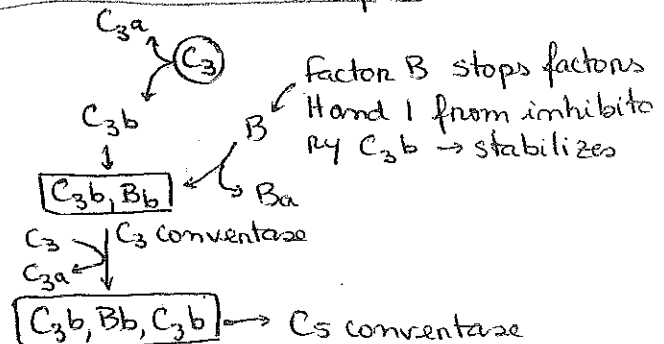 C3a
C3
Factor B stops factors
H and I from inhibito
ry C3b → stabilizes
C3b
B
Ba
C3b, Bb
C3
C3 conventase
C3a
C3b, Bb, C3b → C5 conventase